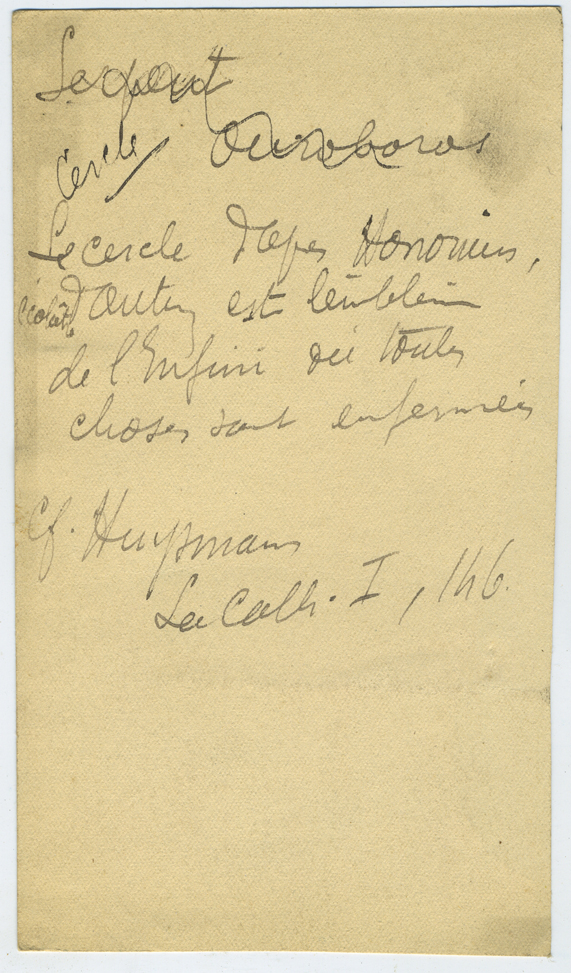 Serpent
Cercle Ouroboros
Le cercle d'après Honorius,
écolâtre d'Autun est l'emblème
de l'Infini où toutes
choses sont enfermées
Cf. Huysmans
La Cath. I, 146.